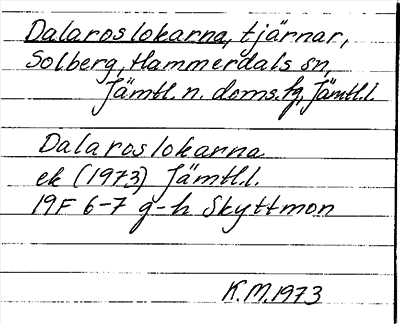 Dalaroslokarna, tjärnar,
Solberg, Hammerdals sn,
Jämtl. n. doms. tg, Jämtl. l.
Dalaroslokarna
ek (1973) Jämtl. l.
19F 6-7 g-h Skyttmon
K.M. 1973